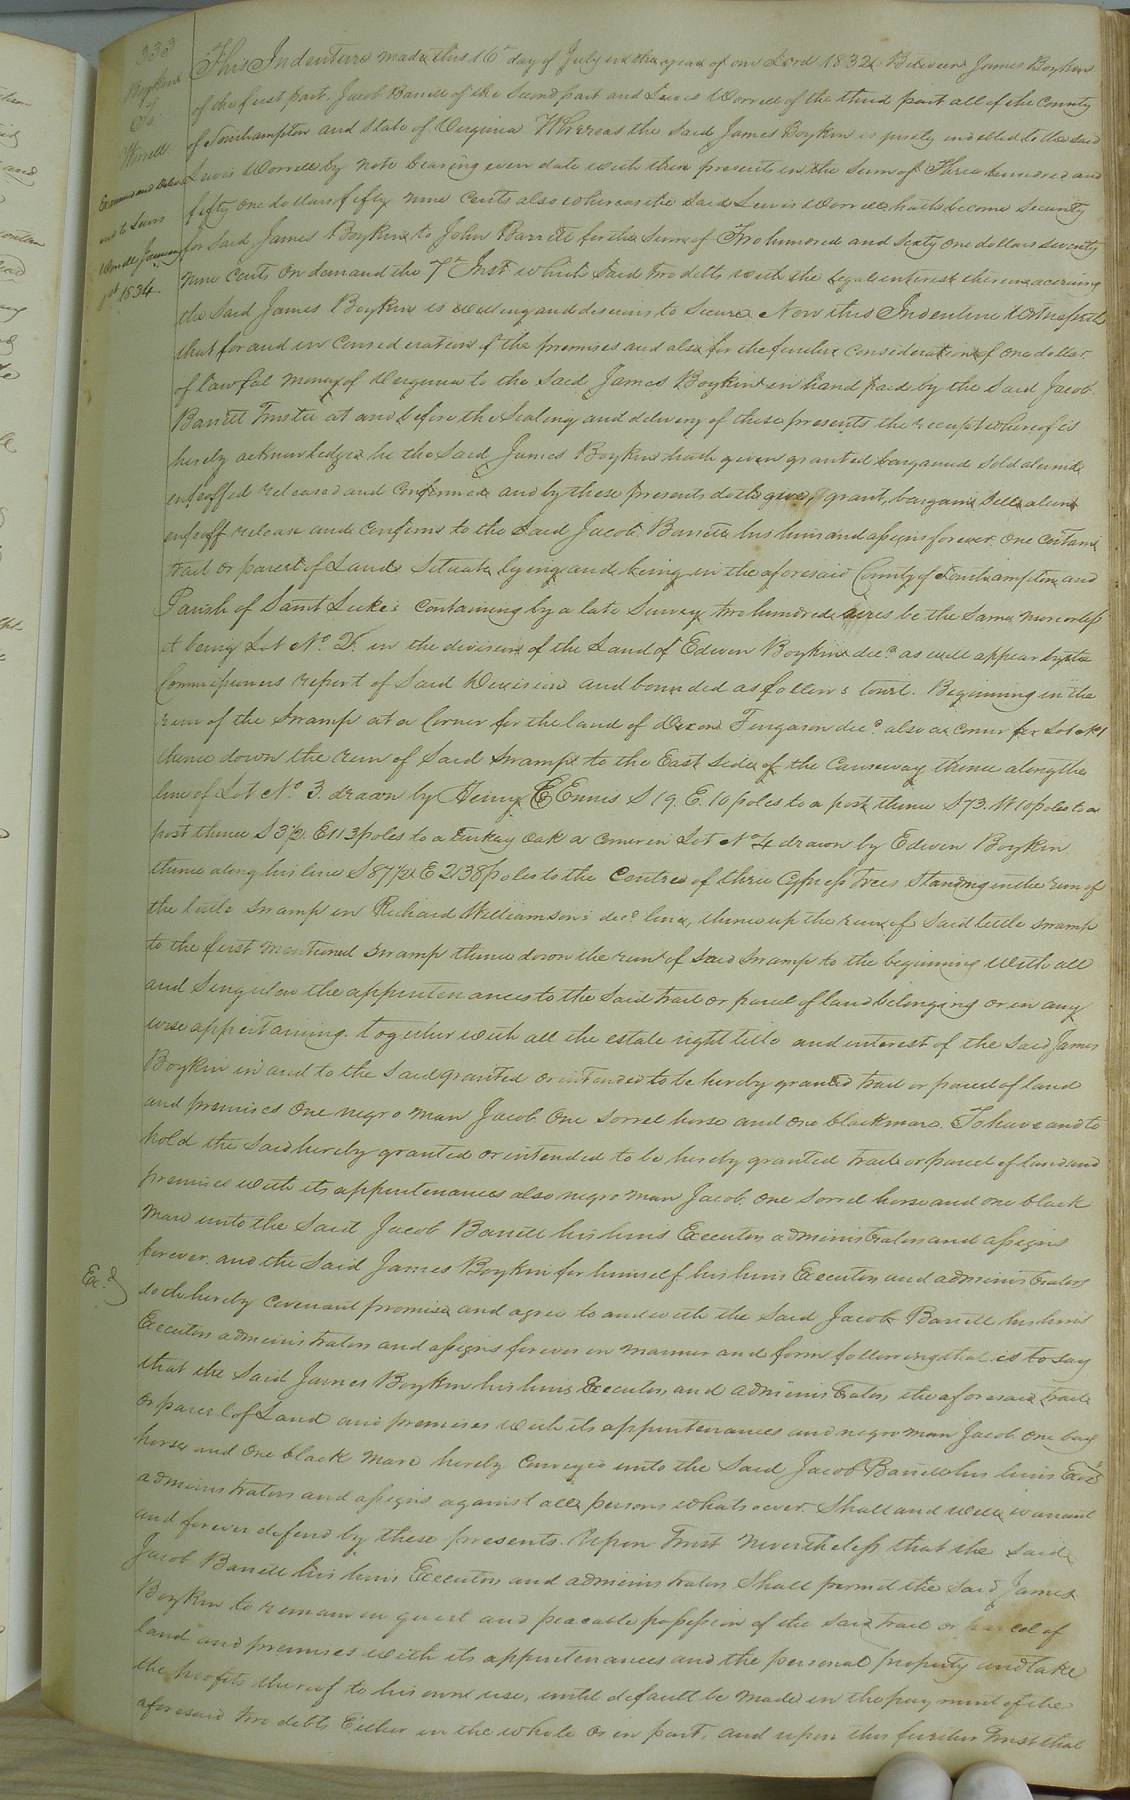 333
Boykin
To
Worrell
Examined and Delive
red to Lewis
Worrell January
1st 1834
This Indenture made this 16th day of July in the year of our Lord 1832 Between James Boykin
of the first part, Jacob Barrett of the Second part and Lewis Worrell of the third part all of the County
of Southampton and State of Virginia Whereas the said James Boykin is justly indebted to the said
Lewis Worrell by note bearing even date with these presents in the Sum of Three hundred and
fifty one dollars fifty nine Cents also whereas the Said Lewis Worrell hath become Security
for said James Boykin to John Barrett for the Sum of Two hundred and Sixty one dollars seventy
nine Cents on demand the 7th Inst which Said two debts with the legal interest thereon accruing
the Said James Boykin is willing and desirous to Secure. Now this Indenture Witnesseth
that for and in Consideration of the premises and also for the further Consideration of one dollar
of lawful money of Virginia to the Said James Boykin in hand paid by the Said Jacob
Barrett Trustee at and before the Sealing and delivery of these presents the receipt whereof is
hereby acknowledged he the Said James Boykin hath given granted bargained Sold aliened
enfeoffed released and Confirmed and by these presents doth give, grant, bargain Sell alien
enfeoff release and Confirm to the Said Jacob Barrett his heirs and assigns forever. One Certain
tract or parcel of Land Situate lying and being in the aforesaid County of Southampton and
Parish of Saint Luke's Containing by a late Survey two hundred acres be the Same more or less
it being Lot No. 2. in the division of the Land of Edwin Boykin decd. as will appear by the
Commissioners report of Said Division and bounded as follows towit. Beginning in the
run of the Swamp at a Corner for the land of Dixon Furgason decd. also a corner for Lot No 1
thence down the run of Said Swamp to the East Side of the Causeway thence along the
line of Lot No. 3. drawn by Henry Ennis S 19. E. 10 poles to a post thence S 73. W 10 poles to a
post thence S 3½. E 113 poles to a Turkey Oak a corner in Lot No 4 drawn by Edwin Boykin
thence along his line S 87½ E 238 poles to the Centre of three Cypress Trees Standing in the run of
the little Swamp in Richard Williamson's decd. line, thence up the run of Said little Swamp
to the first mentioned Swamp thence down the run of Said Swamp to the beginning With all
and Singular the appurtenances to the Said tract or parcel of land belonging or in any
wise appertaining. together with all the estate right title and interest of the Said James
Boykin in and to the Said granted or intended to be hereby granted tract or parcel of land
and premises One negro man Jacob One Sorrel horse and one black mare. To have and to
hold the Said hereby granted or intended to be hereby granted tract or parcel of land and
premises with its appurtenances also negro man Jacob. One Sorrel horse and one black
mare unto the Said Jacob Barrett his heirs Executors administrators and assigns
forever. and the Said James Boykin for himself his heirs Executors and administrators
Ex.d
doth hereby Covenant promise and agree to and with the Said Jacob Barrett his heirs
Executors administrators and assigns forever in manner and form following that is to say
that the Said James Boykin his heirs Executors and administrators, the aforesaid tract
or parcel of Land and premises with its appurtenances and negro man Jacob One bay
horse and One black mare hereby Conveyed unto the Said Jacob Barrett his heirs Exors
administrators and assigns against all persons whatsoever. Shall and will warrant
and forever defend by these presents. Upon Trust nevertheless that the Said
Jacob Barrett his heirs Executors and administrators Shall permit the Said James
Boykin to remain in quiet and peacable possession of the said tract or parcel of
land and premises with its appurtenances and the personal property and take
the profits thereof to his own use, until default be made in the payment of the
aforesaid two debts Either in the whole or in part, and upon this further Trust that